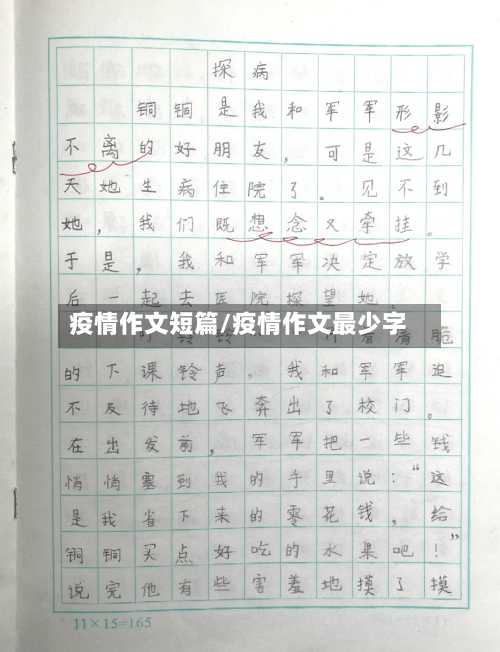 探病
铜铜是我和军军形影
不离的好朋友，可是这几
天她生病住院了。见不到
她，我们既想念又牵挂。
于是，我和军军决定放学
后一起去医院探望她。
疫情作文短篇/疫情作文最少字
清脆
的下课铃声，我和军军迫
不及待地飞奔出了校门。
在出发前，军军把一些钱
悄悄塞到我的手里说：“这
是我省下来的零花钱，给
铜铜买点好吃的水果吧！”
说完他有些害羞地摸了摸
11×15=165